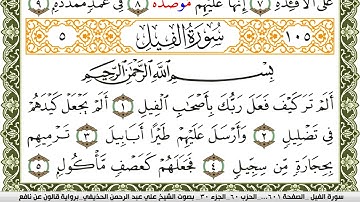 عَلَى ٱلْأَفْـِٕدَةِ ٧ إِنَّهَا عَلَيْهِم مُّوصَدَةٌ ٨ فِي عَمَدٍ مُّمَدَّدَةٍ ٩
٥ سُورَةُ ٱلْفِيلِ ١٠٥
بِسْمِ ٱللَّهِ ٱلرَّحْمَٰنِ ٱلرَّحِيمِ
أَلَمْ تَرَ كَيْفَ فَعَلَ رَبُّكَ بِأَصْحَٰبِ ٱلْفِيلِ ١ أَلَمْ يَجْعَلْ كَيْدَهُمْ
فِي تَضْلِيلٍ ٢ وَأَرْسَلَ عَلَيْهِمْ طَيْرًا أَبَابِيلَ ٣ تَرْمِيهِم
بِحِجَارَةٍ مِّن سِجِّيلٍ ٤ فَجَعَلَهُمْ كَعَصْفٍ مَّأْكُولٍ
سورة الفيل - الصفحة ٦٠١ ... الحزب ٦٠ - الجزء ٣٠ - بصوت الشيخ علي عبد الرحمن الحذيفي - برواية قالون عن نافع